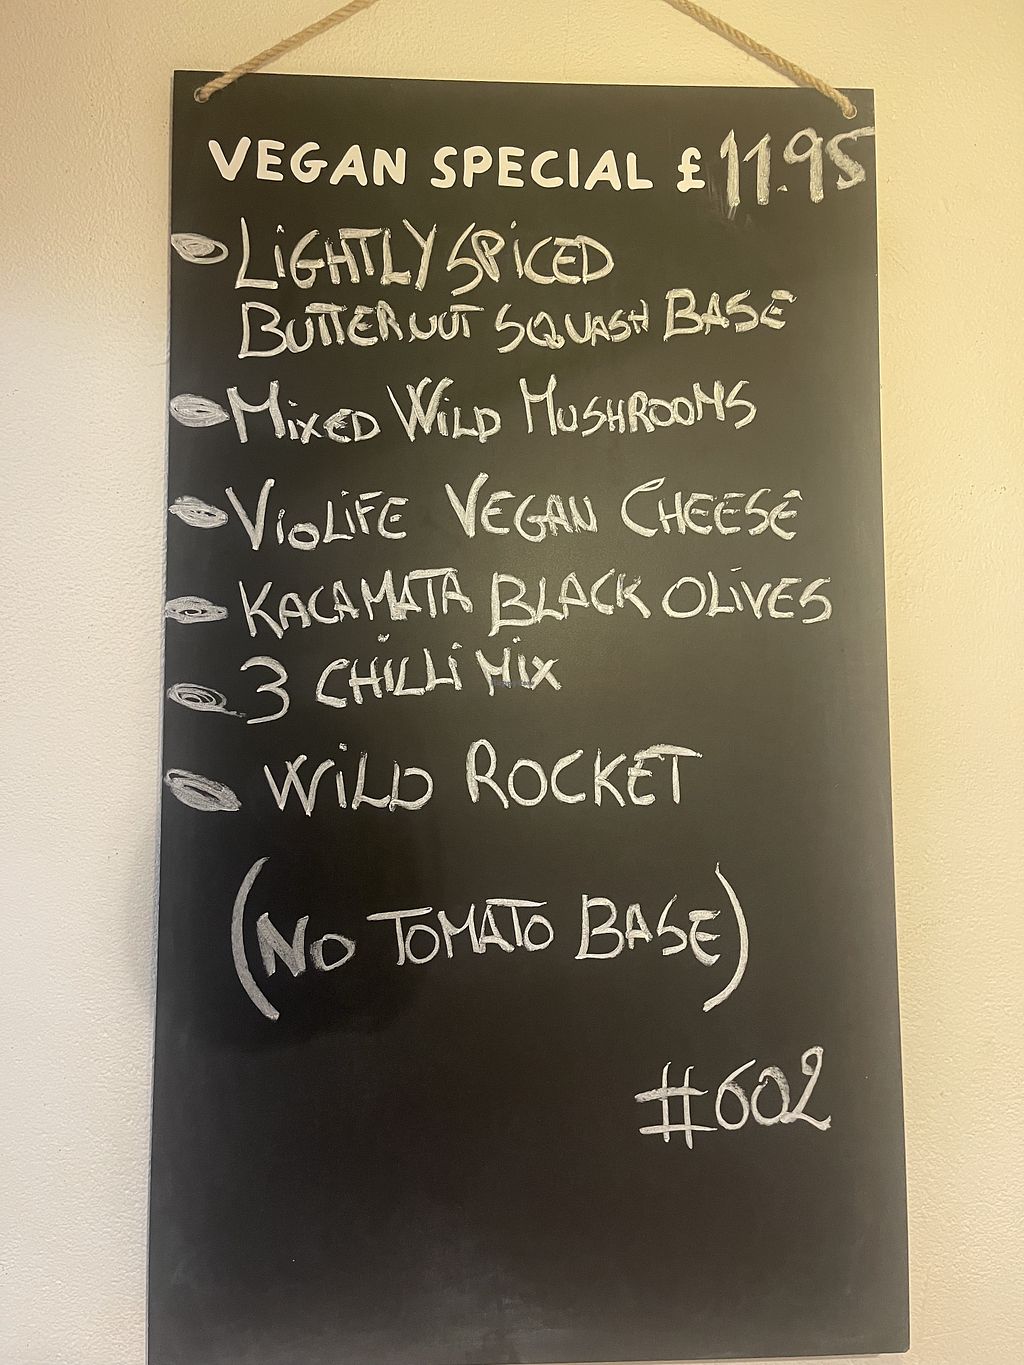 VEGAN SPECIAL £11.95
LiGHTLY SPiCED
BUTTERNUT SQUASH BASE
MixED WilD MUSHROOMS
VioLiFE VEGAN CHEESE
KACAMATA BLACK OLiVES
3 CHiLLi Mix
WiLD ROCKET
(No TOMATO BASE)
#602